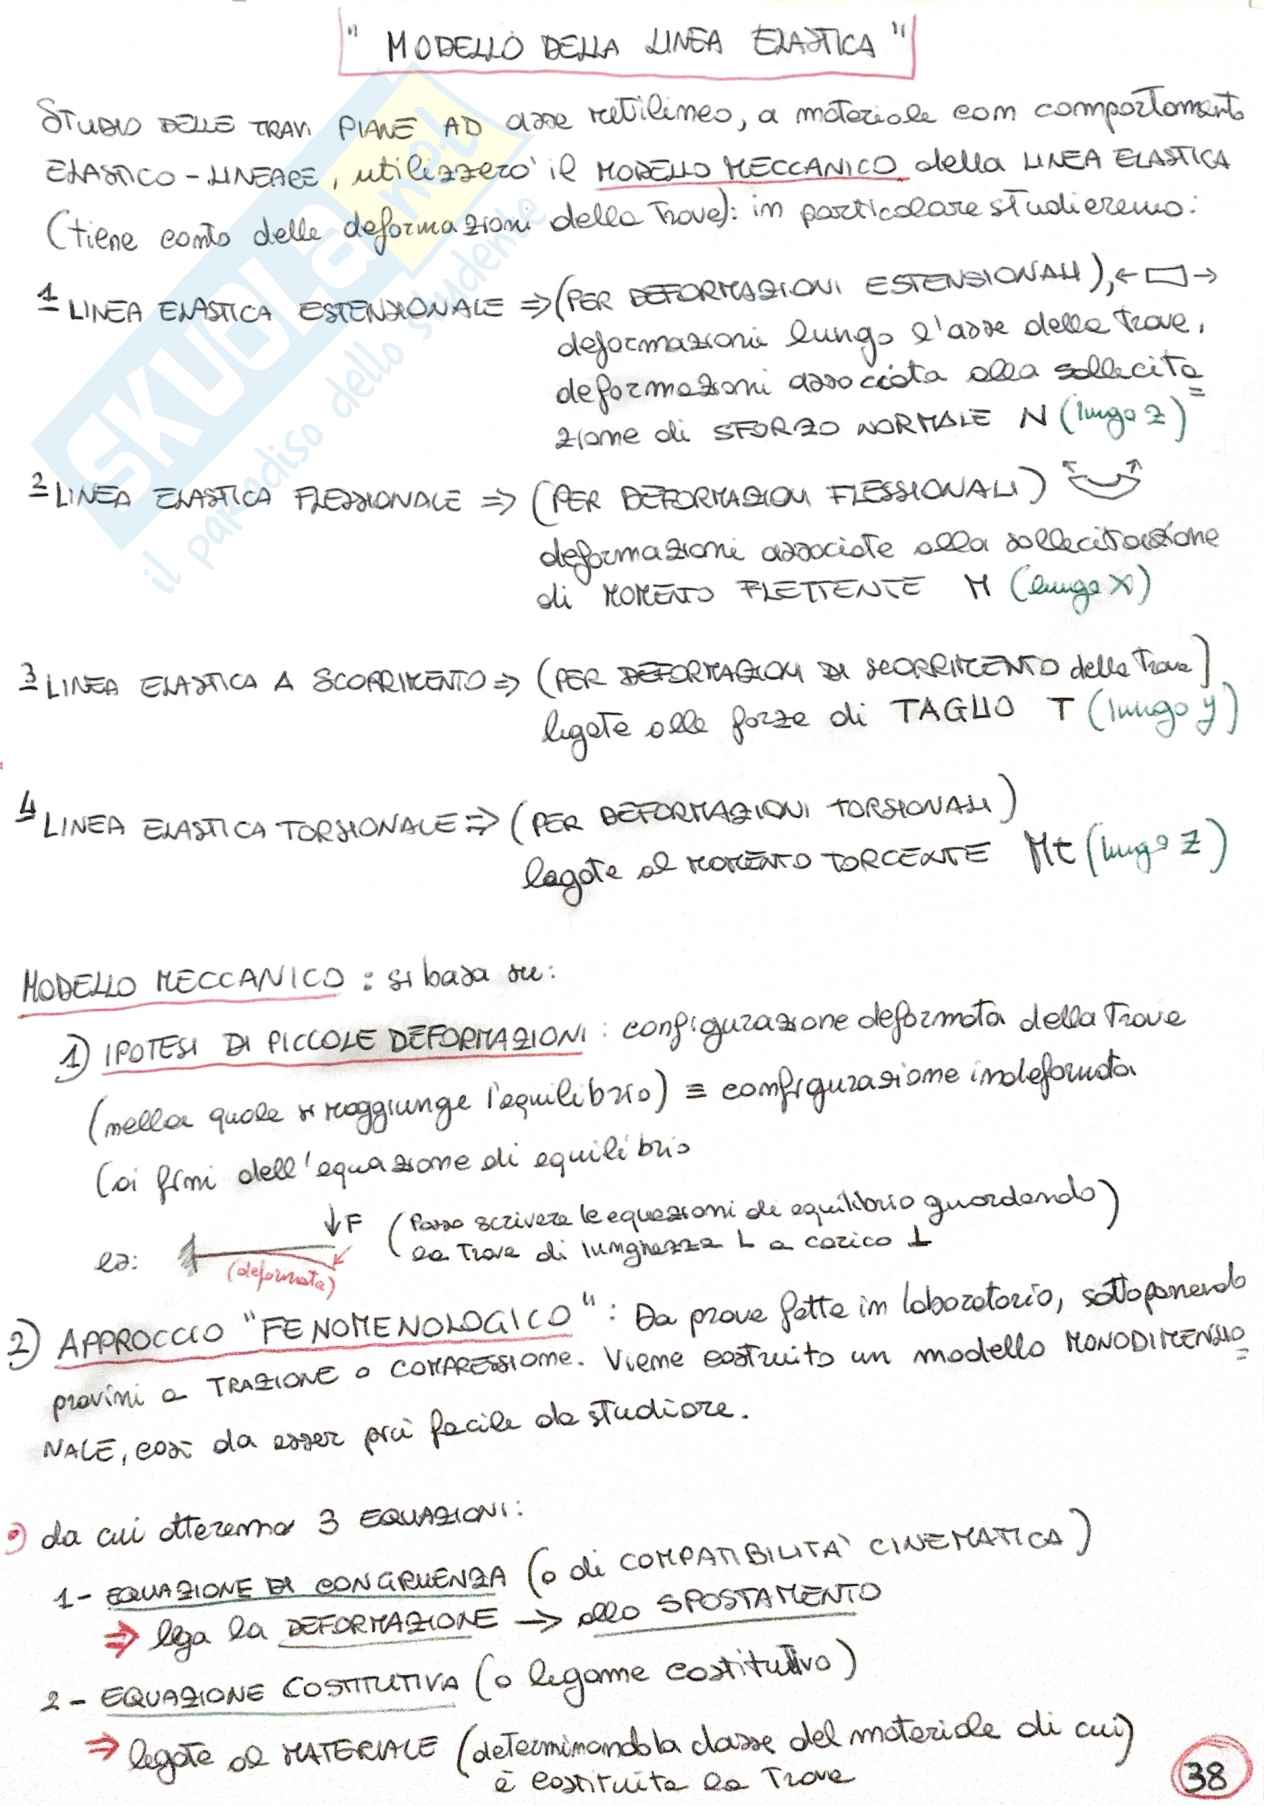 " MODELLO DELLA LINEA ELASTICA "
STUDIO DELLE TRAVI PIANE AD asse rettilineo, a materiale con comportamento
ELASTICO-LINEARE, utilizzerò il MODELLO MECCANICO della LINEA ELASTICA
(tiene conto delle deformazioni della Trave): in particolare studieremo:
1 LINEA ELASTICA ESTENSIONALE ⇒ (PER DEFORMAZIONI ESTENSIONALI), ← →
deformazioni lungo l'asse della trave,
deformazioni associata alla sollecita=
zione di SFORZO NORMALE N (lungo z)
2 LINEA ELASTICA FLESSIONALE ⇒ (PER DEFORMAZIONI FLESSIONALI)
deformazioni associate alla sollecitazione
di MOMENTO FLETTENTE M (lungo x)
3 LINEA ELASTICA A SCORRIMENTO ⇒ (PER DEFORMAZIONI DI SCORRIMENTO della Trave)
legate alle forze di TAGLIO T (lungo y)
4 LINEA ELASTICA TORSIONALE ⇒ (PER DEFORMAZIONI TORSIONALI)
legate al MOMENTO TORCENTE Mt (lungo z)
MODELLO MECCANICO : si basa su:
1) IPOTESI DI PICCOLE DEFORMAZIONI : configurazione deformata della Trave
(nella quale si raggiunge l'equilibrio) ≡ configurazione indeformata
(ai fini dell'equazione di equilibrio
es: ↓F (Posso scrivere le equazioni di equilibrio guardando)
(deformata) la Trave di lunghezza L a carico ⊥
2) APPROCCIO "FENOMENOLOGICO" : Da prove fatte in laboratorio, sottoponendo
provini a TRAZIONE o COMPRESSIONE. Viene costruito un modello MONODIMENSIO=
NALE, così da esser più facile da studiare.
da cui otteremo 3 EQUAZIONI:
1- EQUAZIONE DI CONGRUENZA (o di COMPATIBILITÀ CINEMATICA)
⇒ lega la DEFORMAZIONE → allo SPOSTAMENTO
2- EQUAZIONE COSTITUTIVA (o legame costitutivo)
⇒ legate al MATERIALE (determinando la classe del materiale di cui)
è costituita la Trave
38
SKUOLA.net
il paradiso dello studente